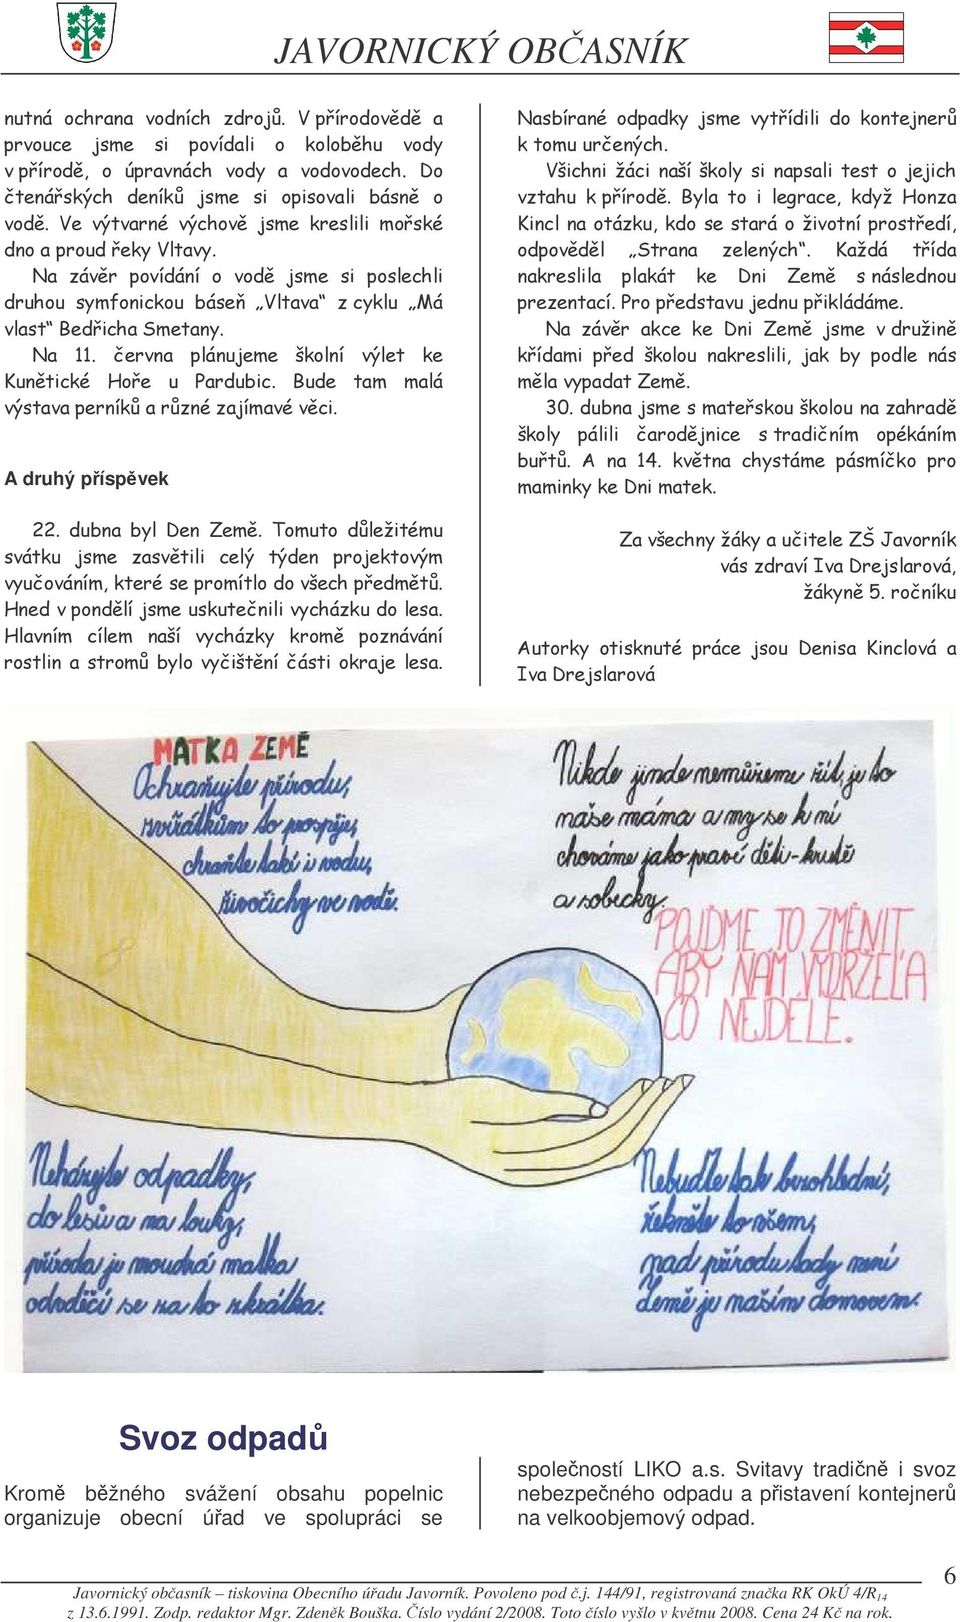 JAVORNICKÝ OBČASNÍK
nutná ochrana vodních zdrojů. V přírodovědě a
prvouce jsme si povídali o koloběhu vody
v přírodě, o úpravnách vody a vodovodech. Do
čtenářských deníků jsme si opisovali básně o
vodě. Ve výtvarné výchově jsme kreslili mořské
dno a proud řeky Vltavy.
Na závěr povídání o vodě jsme si poslechli
druhou symfonickou báseň „Vltava“ z cyklu „Má
vlast“ Bedřicha Smetany.
Na 11. června plánujeme školní výlet ke
Kunětické Hoře u Pardubic. Bude tam malá
výstava perníků a různé zajímavé věci.
A druhý příspěvek
22. dubna byl Den Země. Tomuto důležitému
svátku jsme zasvětili celý týden projektovým
vyučováním, které se promítlo do všech předmětů.
Hned v pondělí jsme uskutečnili vycházku do lesa.
Hlavním cílem naší vycházky kromě poznávání
rostlin a stromů bylo vyčištění části okraje lesa.
Nasbírané odpadky jsme vytřídili do kontejnerů
k tomu určených.
Všichni žáci naší školy si napsali test o jejich
vztahu k přírodě. Byla to i legrace, když Honza
Kincl na otázku, kdo se stará o životní prostředí,
odpověděl „Strana zelených“. Každá třída
nakreslila plakát ke Dni Země s následnou
prezentací. Pro představu jednu přikládáme.
Na závěr akce ke Dni Země jsme v družině
křídami před školou nakreslili, jak by podle nás
měla vypadat Země.
30. dubna jsme s mateřskou školou na zahradě
školy pálili čarodějnice s tradičním opékáním
buřtů. A na 14. května chystáme pásmíčko pro
maminky ke Dni matek.
Za všechny žáky a učitele ZŠ Javorník
vás zdraví Iva Drejslarová,
žákyně 5. ročníku
Autorky otisknuté práce jsou Denisa Kinclová a
Iva Drejslarová
MATKA ZEMĚ
Ochraňujte přírodu,
zvířátkům to prospěje,
chraňte také i vodu,
živočichy ve vodě.
Nikde jinde nemůžeme žít, je to
naše máma a my se k ní
chováme jako praví děti - krutě
a sobecky.
POJĎME TO ZMĚNIT,
ABY NÁM VYDRŽELA
CO NEJDÉLE.
Neházejte odpadky,
do lesů a na louky,
příroda je moudrá matka
odvděčí se za to zkrátka.
Nebuďte tak bezohlední,
řekněte to všem,
nad přírodu tady není
země je naším domovem.
Svoz odpadů
Kromě běžného svážení obsahu popelnic
organizuje obecní úřad ve spolupráci se
společností LIKO a.s. Svitavy tradičně i svoz
nebezpečného odpadu a přistavení kontejnerů
na velkoobjemový odpad.
6
Javornický občasník – tiskovina Obecního úřadu Javorník. Povoleno pod č.j. 144/91, registrovaná značka RK OkÚ 4/R14
z 13.6.1991. Zodp. redaktor Mgr. Zdeněk Bouška. Číslo vydání 2/2008. Toto číslo vyšlo v květnu 2008. Cena 24 Kč na rok.